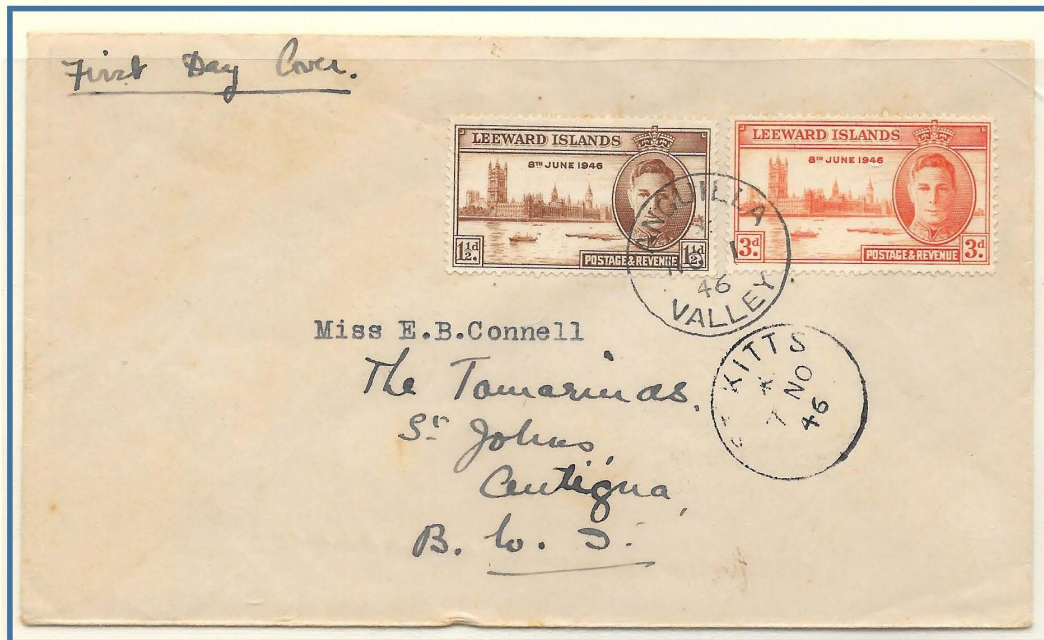 First Day Cover.
LEEWARD ISLANDS
8TH JUNE 1946
1½d.
POSTAGE & REVENUE
1½d.
LEEWARD ISLANDS
8TH JUNE 1946
3d.
POSTAGE & REVENUE
3d.
ANGUILLA
NO 1
46
VALLEY
Miss E.B.Connell
The Tamarinds,
St Johns,
Antigua,
B. W. I.
ST KITTS
7 NO
46